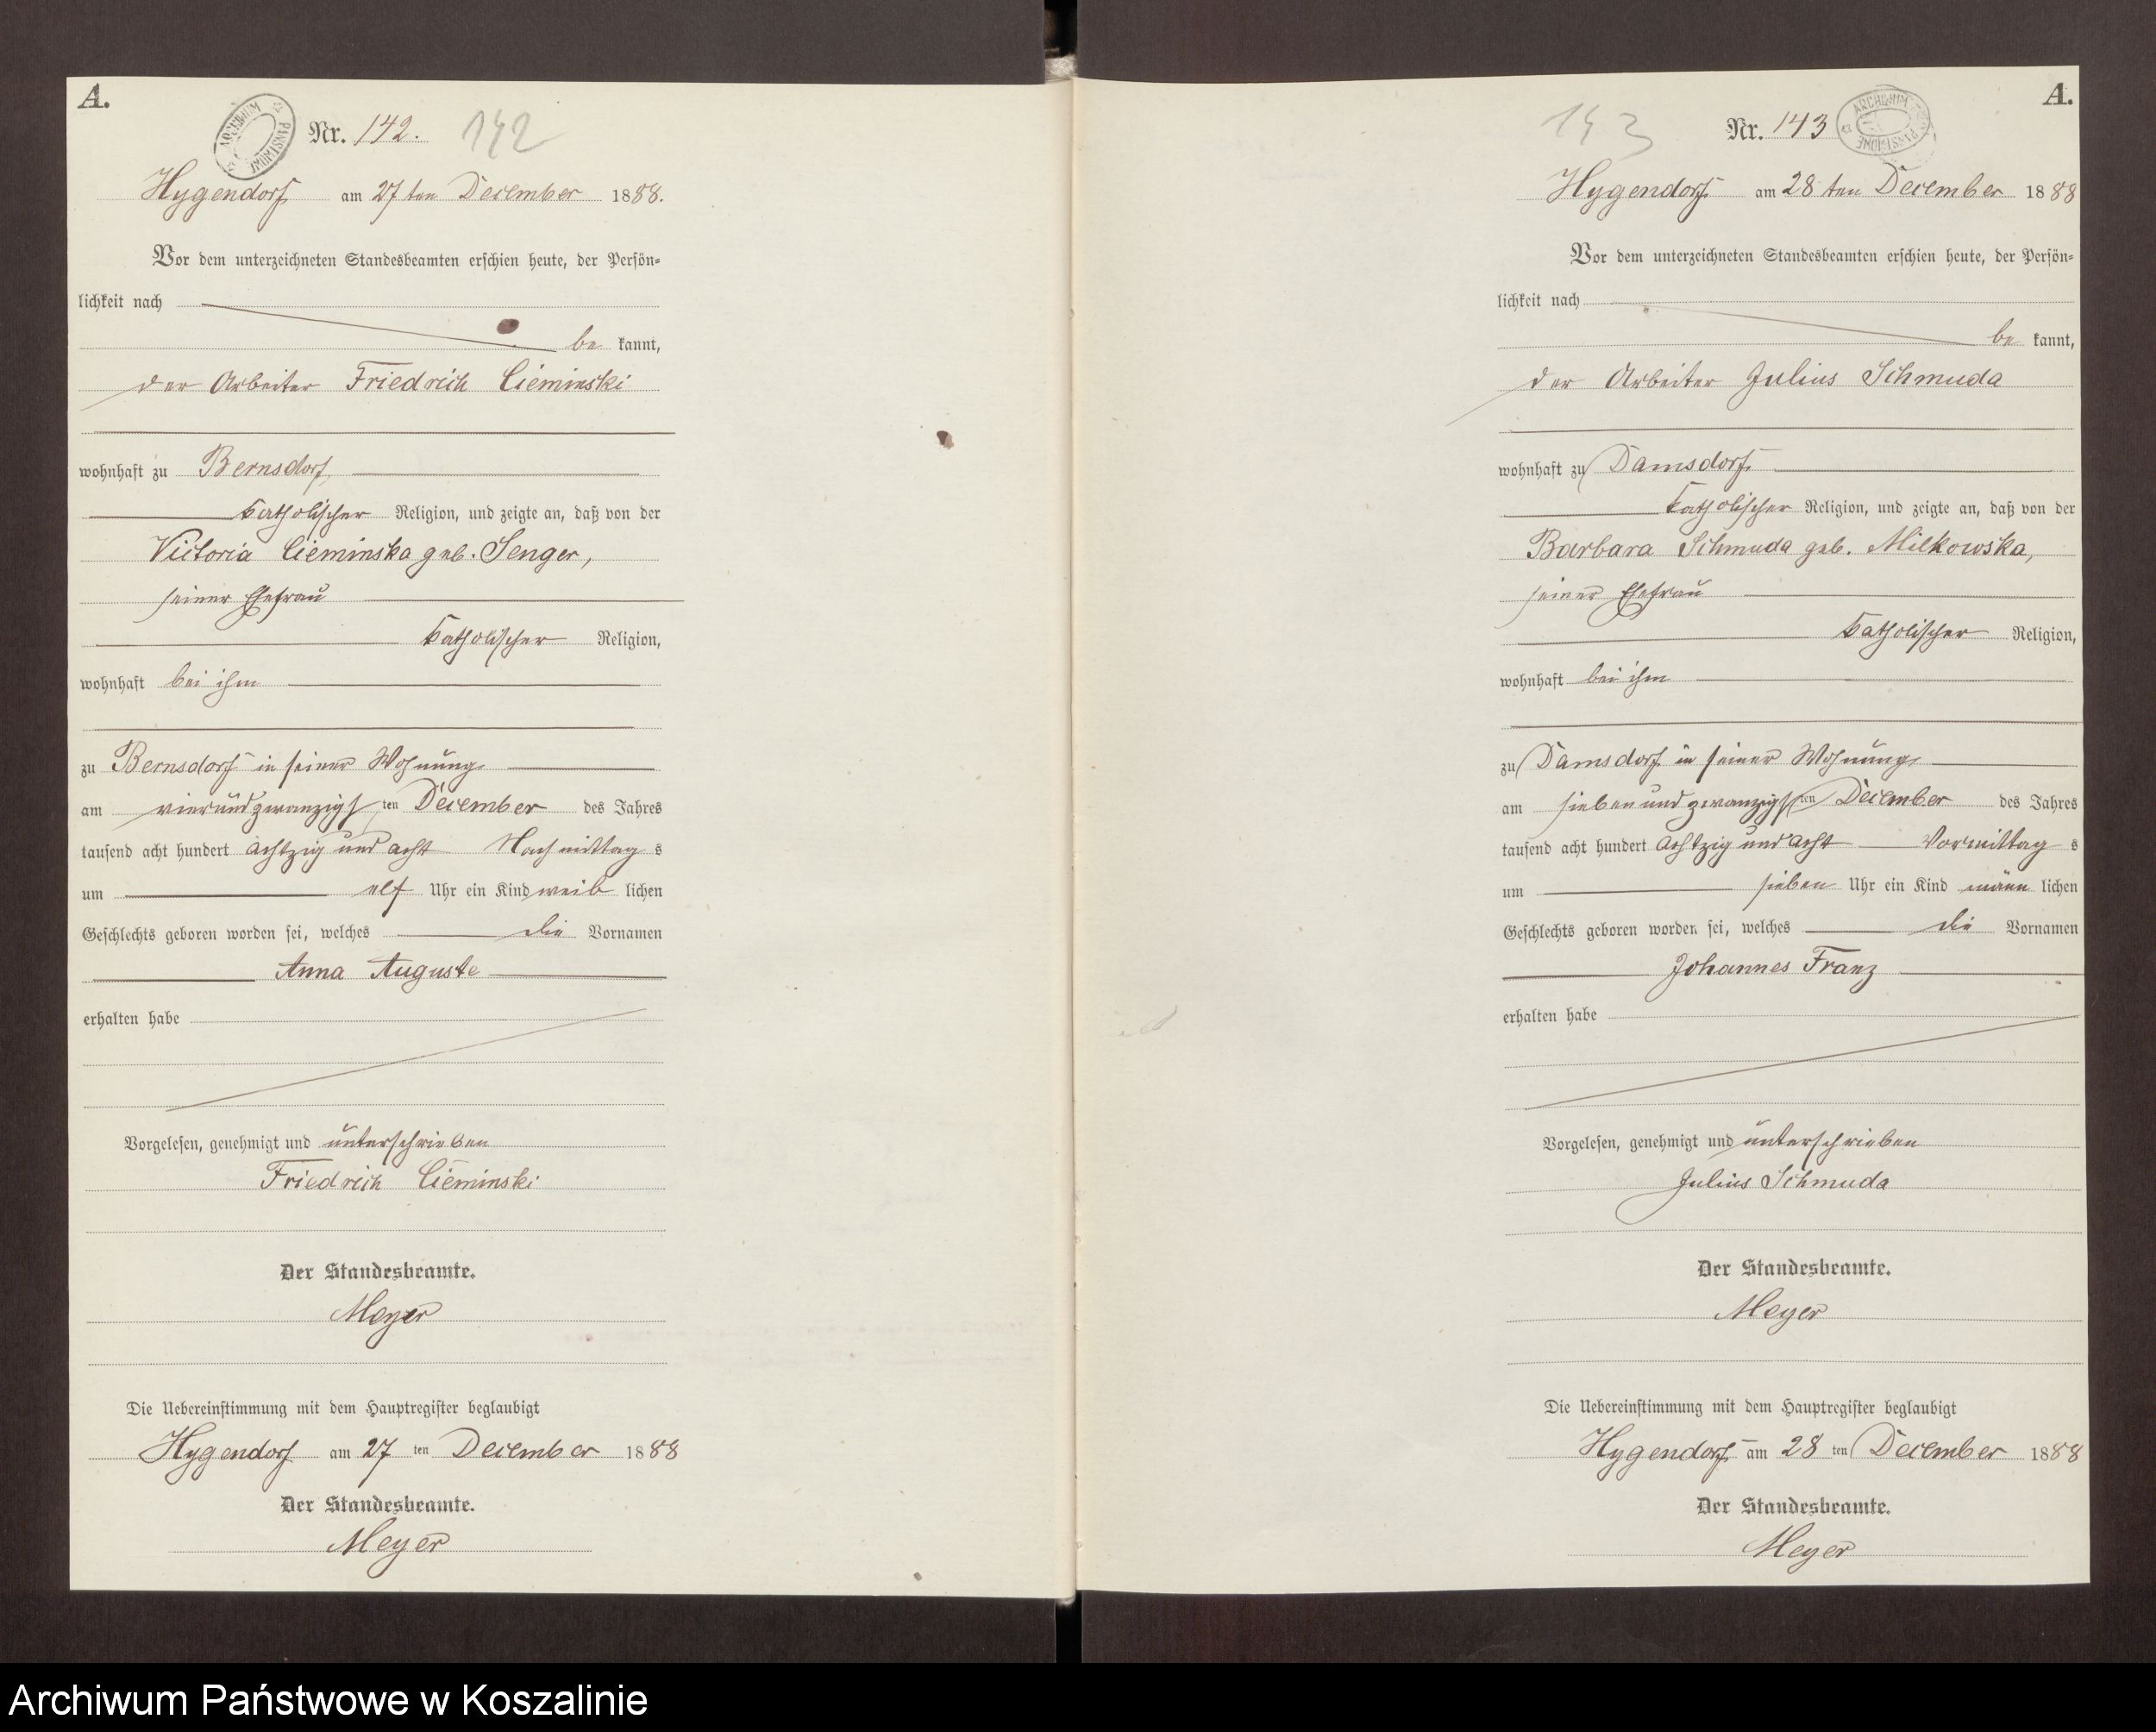 A.
Nr. 142. 142
Hygendorf am 27ten December 1888.
Vor dem unterzeichneten Standesbeamten erschien heute, der Persön-
lichkeit nach
be kannt,
der Arbeiter Friedrich Cieminski
wohnhaft zu Bernsdorf
katholischer Religion, und zeigte an, daß von der
Victoria Cieminska geb. Senger,
seiner Ehefrau
katholischer Religion,
wohnhaft bei ihm
zu Bernsdorf in seiner Wohnung
am vierundzwanzigsten December des Jahres
tausend acht hundert achtzig und acht Nachmittags
um elf Uhr ein Kind weiblichen
Geschlechts geboren worden sei, welches die Vornamen
Anna Auguste
erhalten habe
Vorgelesen, genehmigt und unterschrieben
Friedrich Cieminski
Der Standesbeamte.
Meyer
Die Uebereinstimmung mit dem Hauptregister beglaubigt
Hygendorf am 27ten December 1888
Der Standesbeamte.
Meyer
A.
143 Nr. 143
ARCHIWUM PAŃSTWOWE
Hygendorf am 28ten December 1888
Vor dem unterzeichneten Standesbeamten erschien heute, der Persön-
lichkeit nach
be kannt,
der Arbeiter Julius Schmuda
wohnhaft zu Damsdorf
katholischer Religion, und zeigte an, daß von der
Barbara Schmuda geb. Milkowska,
seiner Ehefrau
katholischer Religion,
wohnhaft bei ihm
zu Damsdorf in seiner Wohnung
am siebenundzwanzigsten December des Jahres
tausend acht hundert achtzig und acht Vormittags
um sieben Uhr ein Kind männlichen
Geschlechts geboren worden sei, welches die Vornamen
Johannes Franz
erhalten habe
Vorgelesen, genehmigt und unterschrieben
Julius Schmuda
Der Standesbeamte.
Meyer
Die Uebereinstimmung mit dem Hauptregister beglaubigt
Hygendorf am 28ten December 1888
Der Standesbeamte.
Meyer
Archiwum Państwowe w Koszalinie